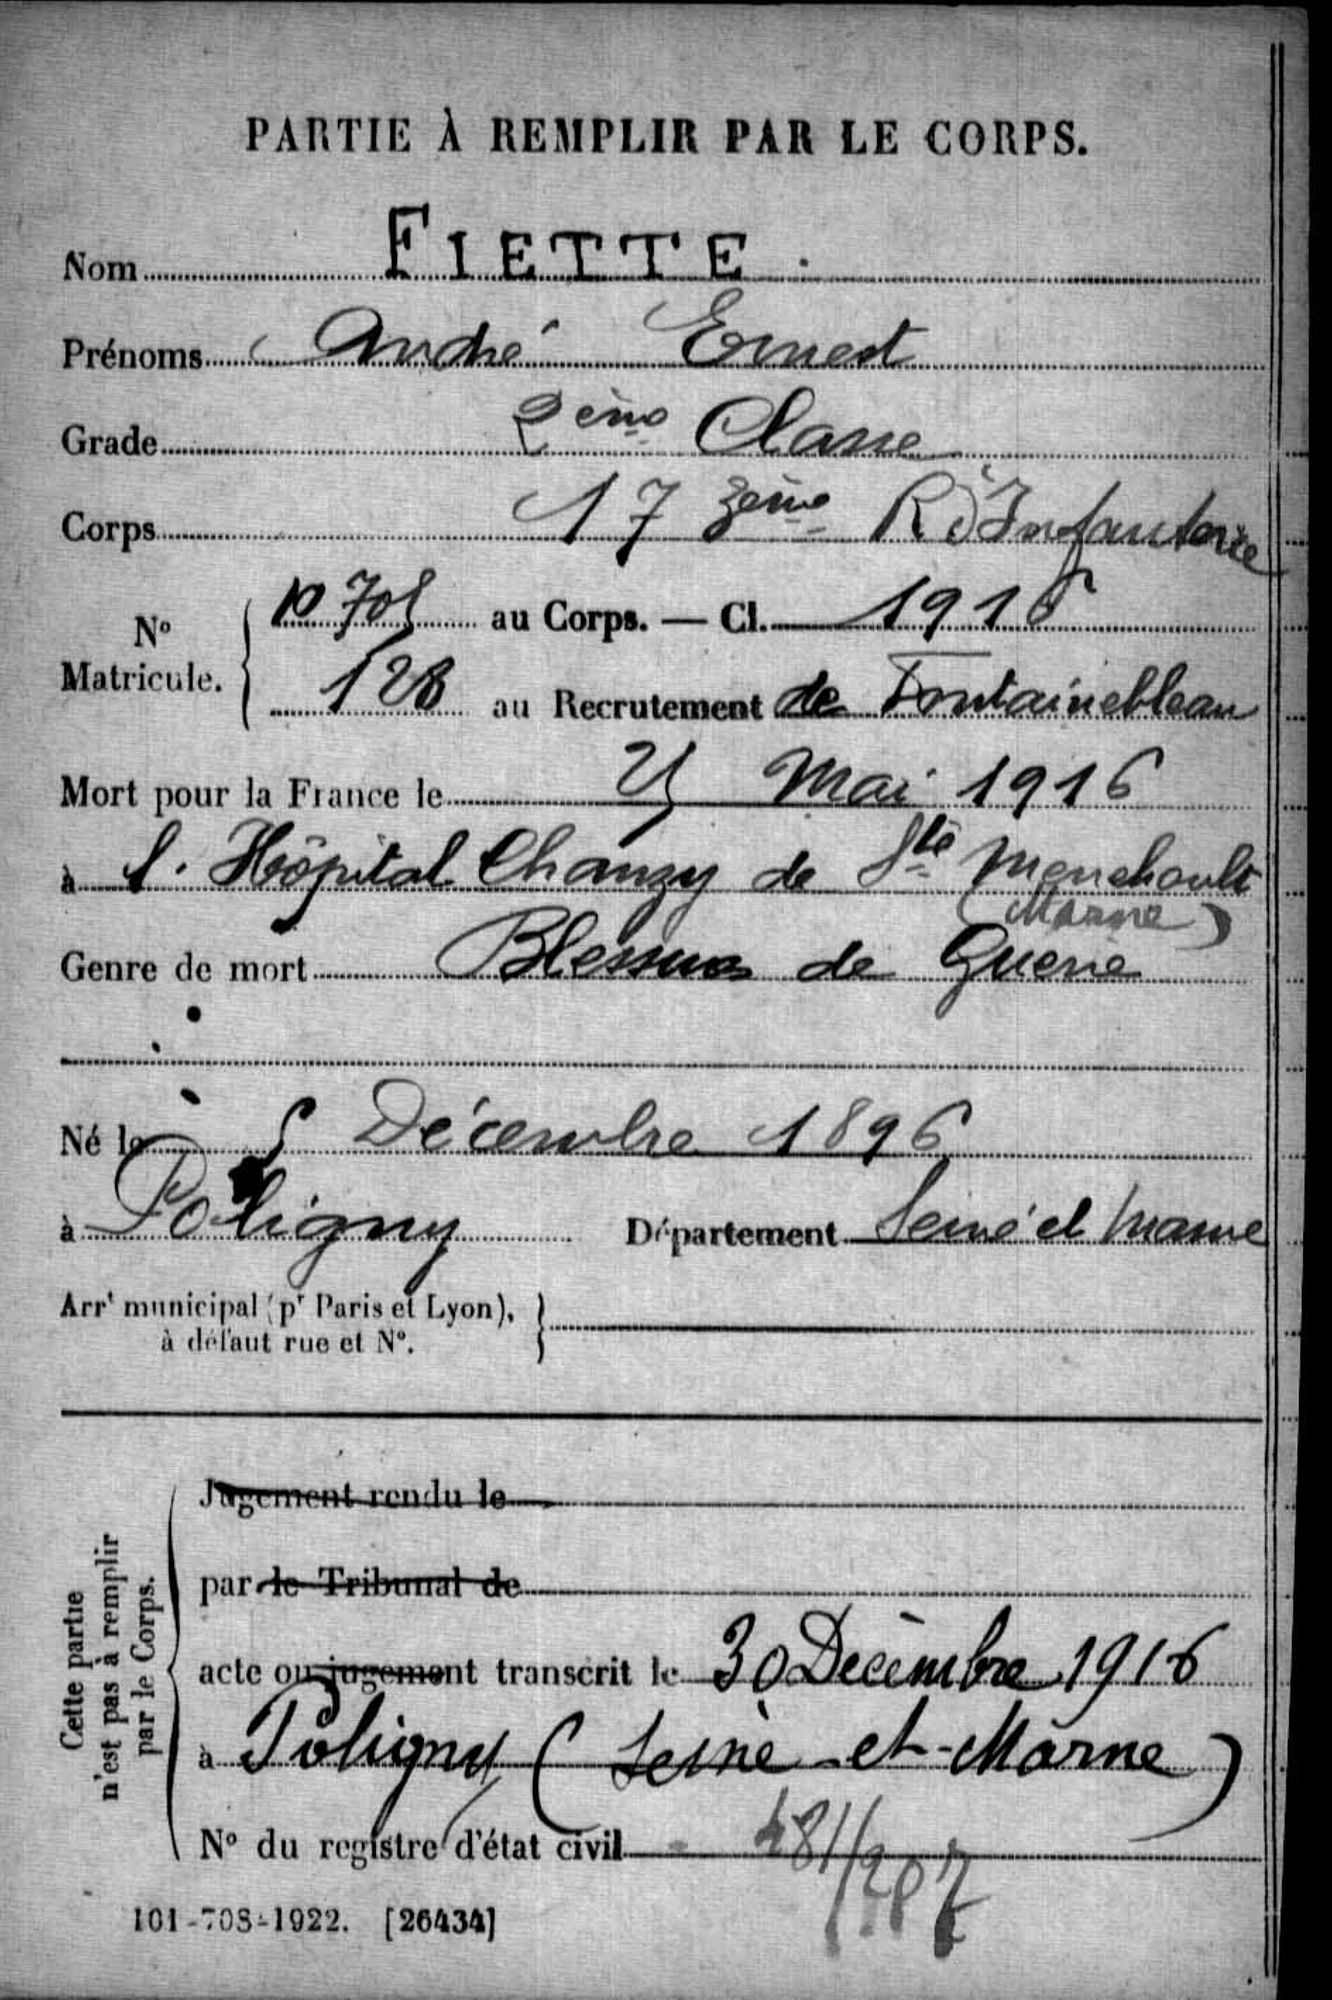 PARTIE À REMPLIR PAR LE CORPS.
Nom FIETTE.
Prénoms André Ernest
Grade 2ème Classe
Corps 17 3ème R. d'Infanterie
N° Matricule. 10 708 au Corps. — Cl. 1916
128 au Recrutement de Fontainebleau
Mort pour la France le Mai 1916
à l'Hôpital Chanzy de Ste Menehould
(Marne)
Genre de mort Blessures de Guerre
Né le 5 Décembre 1896
à Poligny Département Seine et Marne
Arrt municipal (pr Paris et Lyon),
à défaut rue et N°.
Cette partie
n'est pas à remplir
par le Corps.
Jugement rendu le
par le Tribunal de
acte ou jugement transcrit le 30 Décembre 1916
à Poligny (Seine-et-Marne)
N° du registre d'état civil 481/207
101-708-1922. [26434]